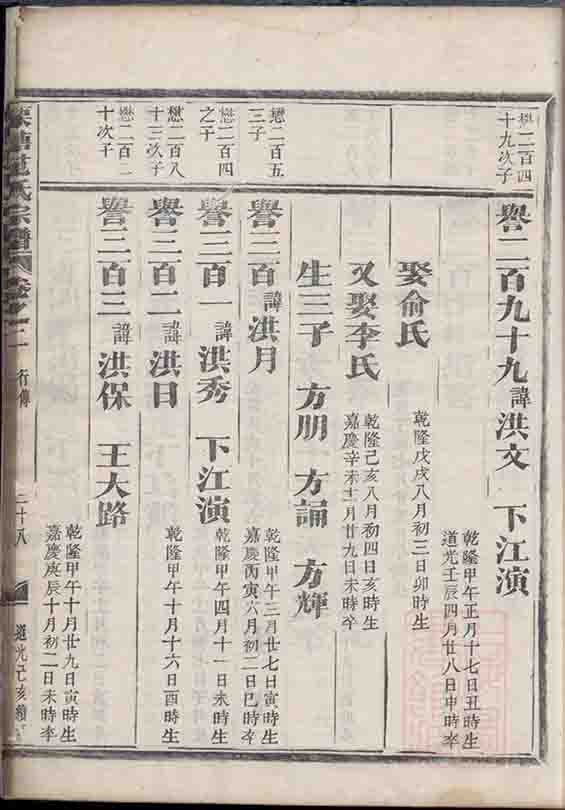 懋二百四
十九次子
譽二百九十九 諱 洪文 下江演
乾隆甲午正月十七日丑時生
道光壬辰四月廿八日申時卒
娶俞氏
乾隆戊戌八月初三日卯時生
又娶李氏
乾隆己亥八月初四日亥時生
嘉慶辛未十二月廿九日未時卒
生三子 方明 方誦 方輝
懋二百五
三子
譽三百 諱 洪月
乾隆甲午三月廿七日寅時生
嘉慶丙寅六月初二日巳時卒
懋二百四
之子
譽三百一 諱 洪秀 下江演
乾隆甲午四月十一日未時生
懋二百八
十三次子
譽三百二 諱 洪日
乾隆甲午十月十六日酉時生
懋二百二
十次子
譽三百三 諱 洪保 王大路
乾隆甲午十月廿九日寅時生
嘉慶庚辰十月初二日未時卒
氏宗譜 卷之 行傳 三十八 道光己亥續